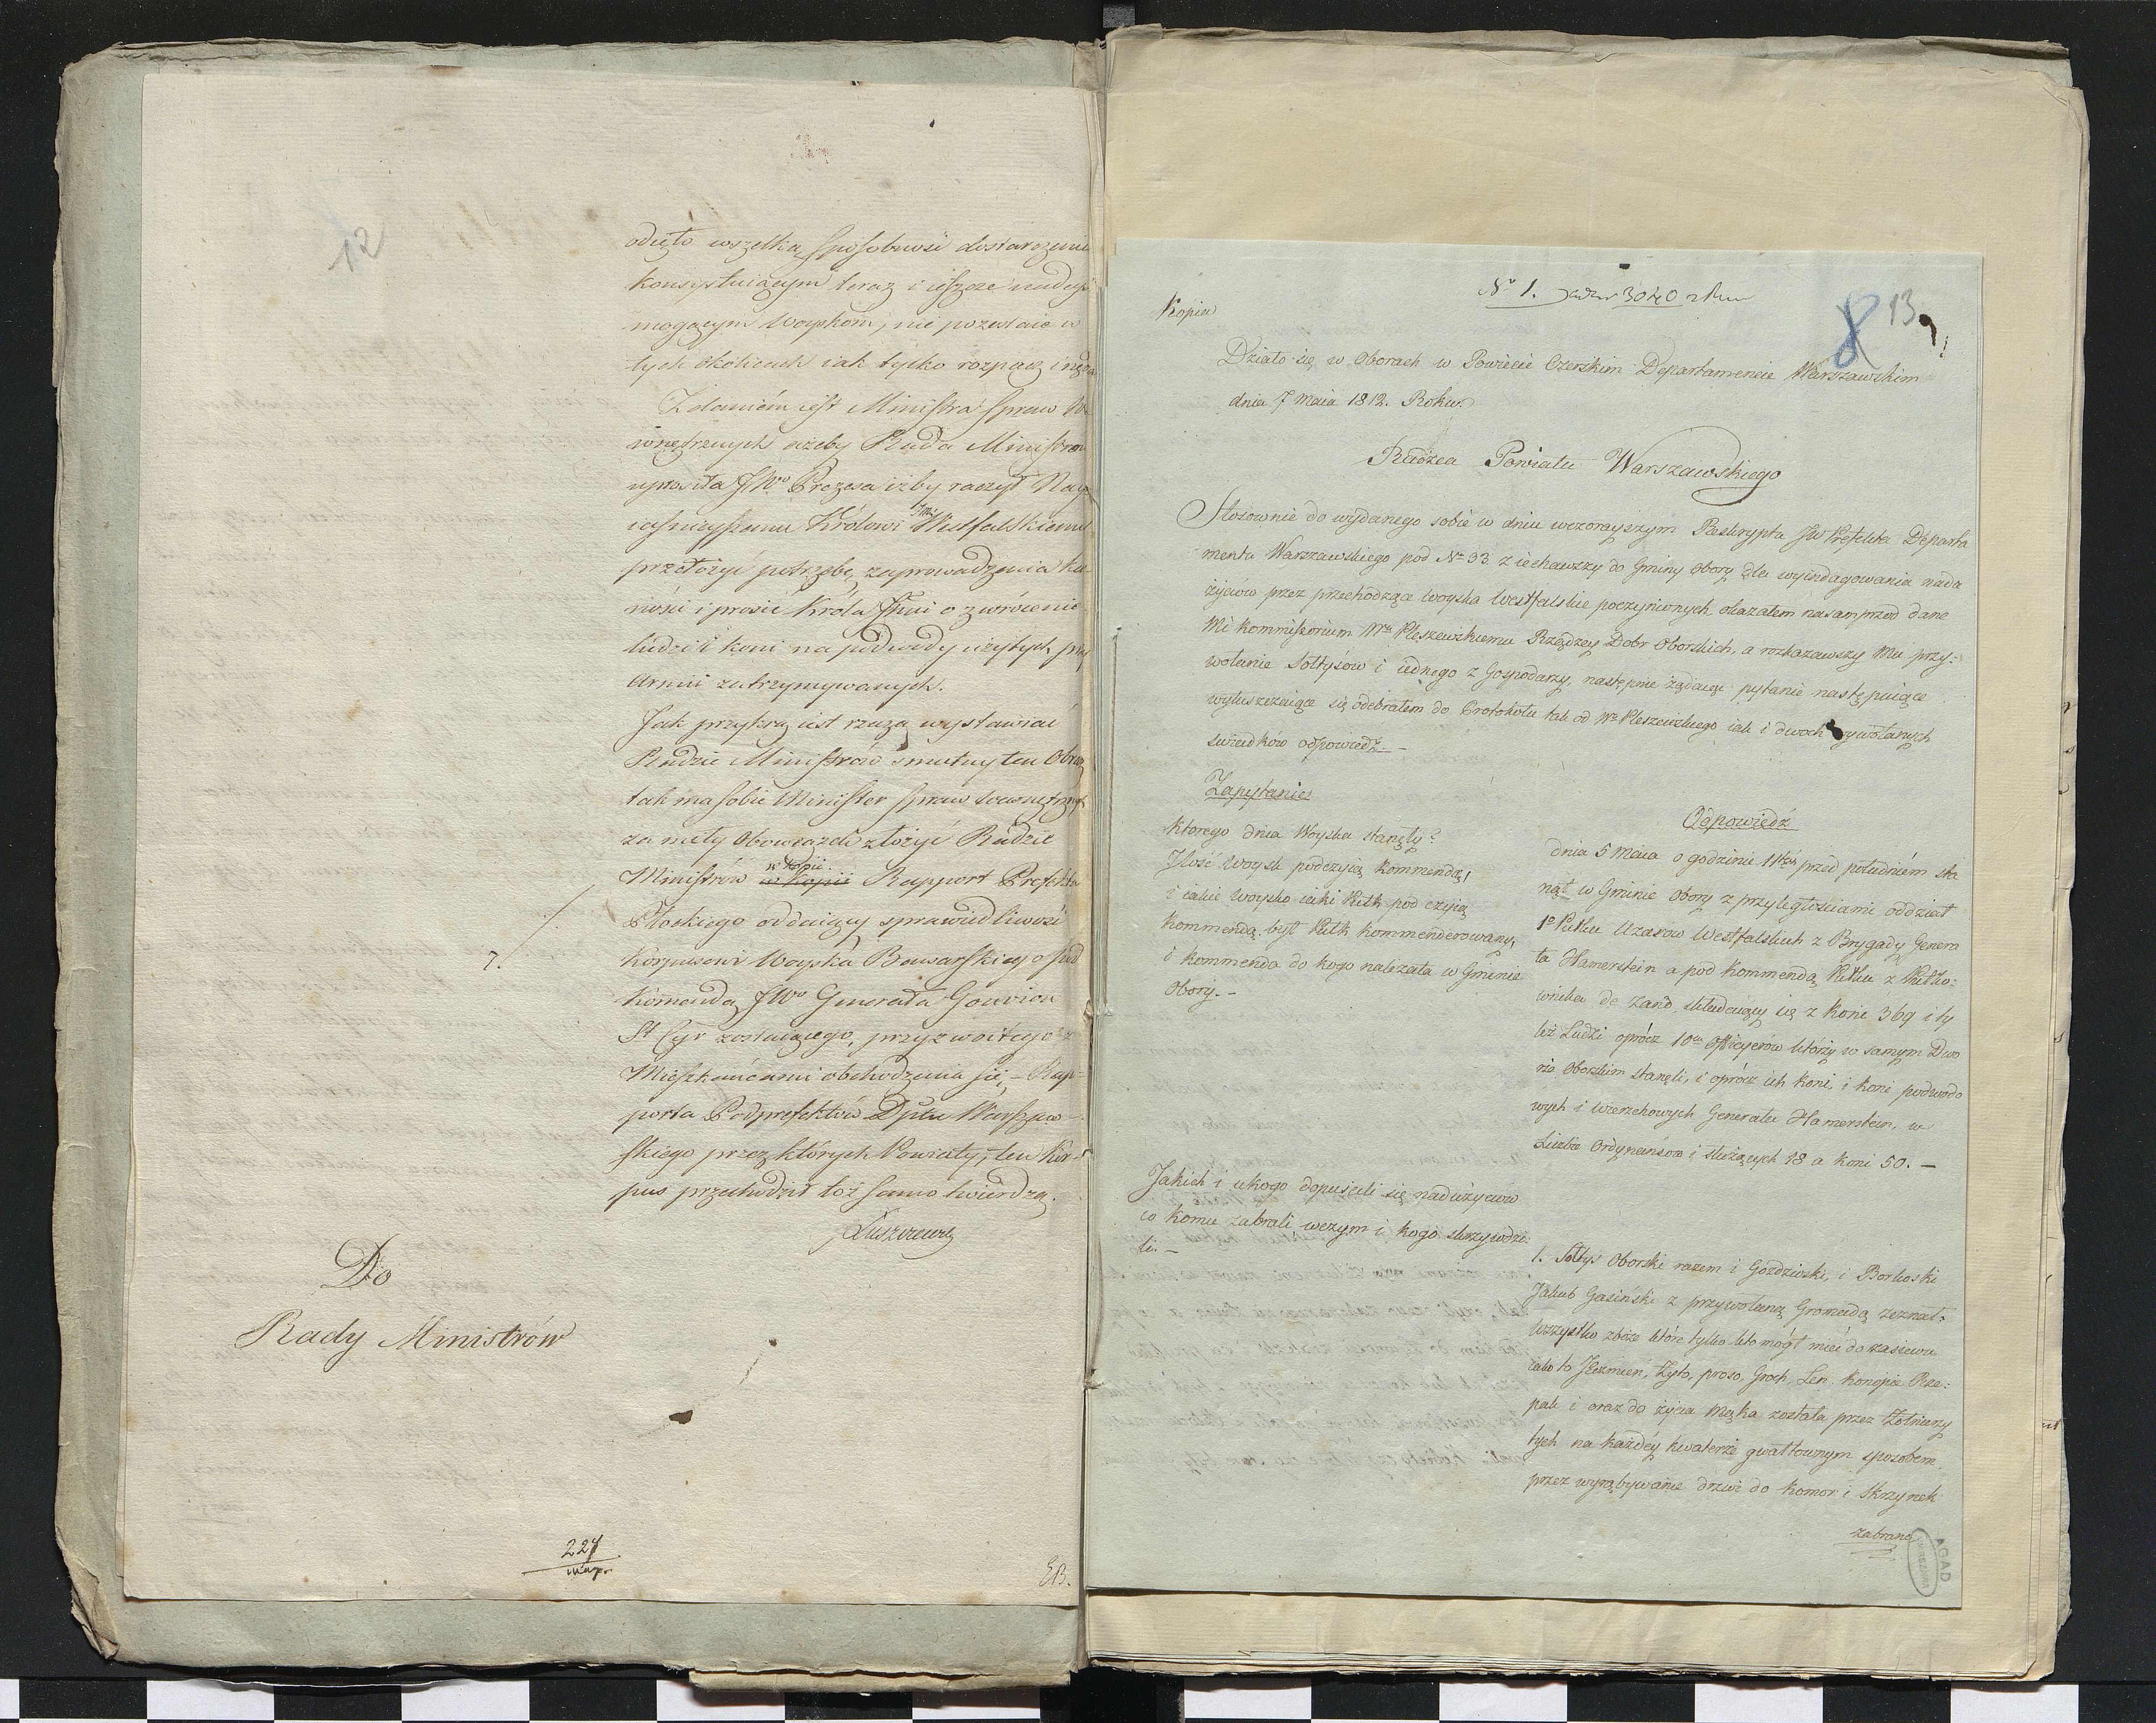 12
odięto wszelką sposobność dostarczenia
konsystuiącym teraz i ieszcze nadeyść
mogącym Woyskom, nie pozostaie w
tych okolicach iak tylko rozpacz i nędza
Zdaniem iest Ministra Spraw We
wnętrznych ażeby Rada Ministrów
uprosiła JWo Prezesa iżby raczył Nay
iaśnieyszemu Królowi Jmci Westfalskiemu
przełożyć potrzebę zaprowadzenia kar
ności i prosić Króla Jmci o zwrócenie
ludzi i koni na podwody użytych przy
Armii zatrzymywanych.
Jak przykrą iest rzeczą wystawiać
Radzie Ministrów smutny ten Obraz
tak ma sobie Minister Spraw Wewnętrznych
za miły obowiązek złożyć Radzie
w kopii
Ministrów w kopii Rapport Prefekta
Płockiego oddaiący sprawiedliwość
7. Korpusowi Woyska Bawarskiego pod
Komendą JWo Generała Gouvion
St Cyr zostaiącego, przyzwoitego z
Mieszkańcami obchodzenia się, – Rap-
porta Podprefektów Dptu Warszaw-
skiego przez których Powiaty, ten Kor-
pus przechodził toż samo twierdzą.
J Łuszczewski
Do
Rady Ministrów
227
EB.
Kopia
No 1. 3040
8 13
Działo się w Oborach w Powiecie Czerskim Departamencie Warszawskim
dnia 7 Maia 1812. Roku.
Radzca Powiatu Warszawskiego
Stosownie do wydanego sobie w dniu wczorayszym Reskryptu JW Prefekta Departa
mentu Warszawskiego pod No 93 ziechawszy do Gminy Obory dla wyindagowania nadu
życiów przez przechodzące Woyska Westfalskie poczynionych okazałem nasamprzod dane
Mi Kommissorium Wu Pleszewskiemu Rządzcy Dobr Oborskich, a rozkazawszy Mu przy-
wołanie Sołtysów i iednego z Gospodarzy, następnie żądaiąc pytanie następuiące
wyłuszczaiące się odebrałem do Protokołu tak od Wo Pleszewskiego iak i dwoch wywołanych
swiadków odpowiedź. –
Zapytanie
Ktorego dnia Woyska stanęły?
Jlość Woysk pod czyią kommendą,
i iakie Woysko iaki Pułk pod czyią
kommendą był Pułk kommenderowany,
i kommenda do kogo należała w Gminie
Obory. –
Jakich i u kogo dopuścili się nadużyciów
co komu zabrali w czym i kogo skrzywdzi
li. –
Odpowiedź
dnia 5 Maia o godzinie 11tey przed południem sta
nął w Gminie Obory z przyległościami oddział
1o Pułku Uzarow Westfalskich z Brygady Genera
ła Hamerstein a pod kommendą Pułku z Pułko-
wnika de Zand składaiący się z koni 369 i ty
leż Ludzi oprócz 10ciu Officyerów którzy w samym Dwo
rze Oborskim stanęli, i oprócz ich koni, i koni podwodo
wych i wierzchowych Generała Hamerstein, w
Liczbie Ordynansow i służących 18 a koni 50. –
1. Sołtys Oborski razem i Gozdziwski, i Borkoski
Jakub Gasiński z przywołaną Gromadą zeznał:
Wszystko zboże które tylko kto mógł mieć do zasiewu
iako to Jęczmień, Żyto, proso, Groch, Len Konopie Rze-
pak i oraz do życia Mąka została przez Żołnierzy
tych na każdéy kwaterze gwałtownym sposobem
przez wyrąbywanie drzwi do komor i skrzynek
zabrana
AGAD
WARSZAWA